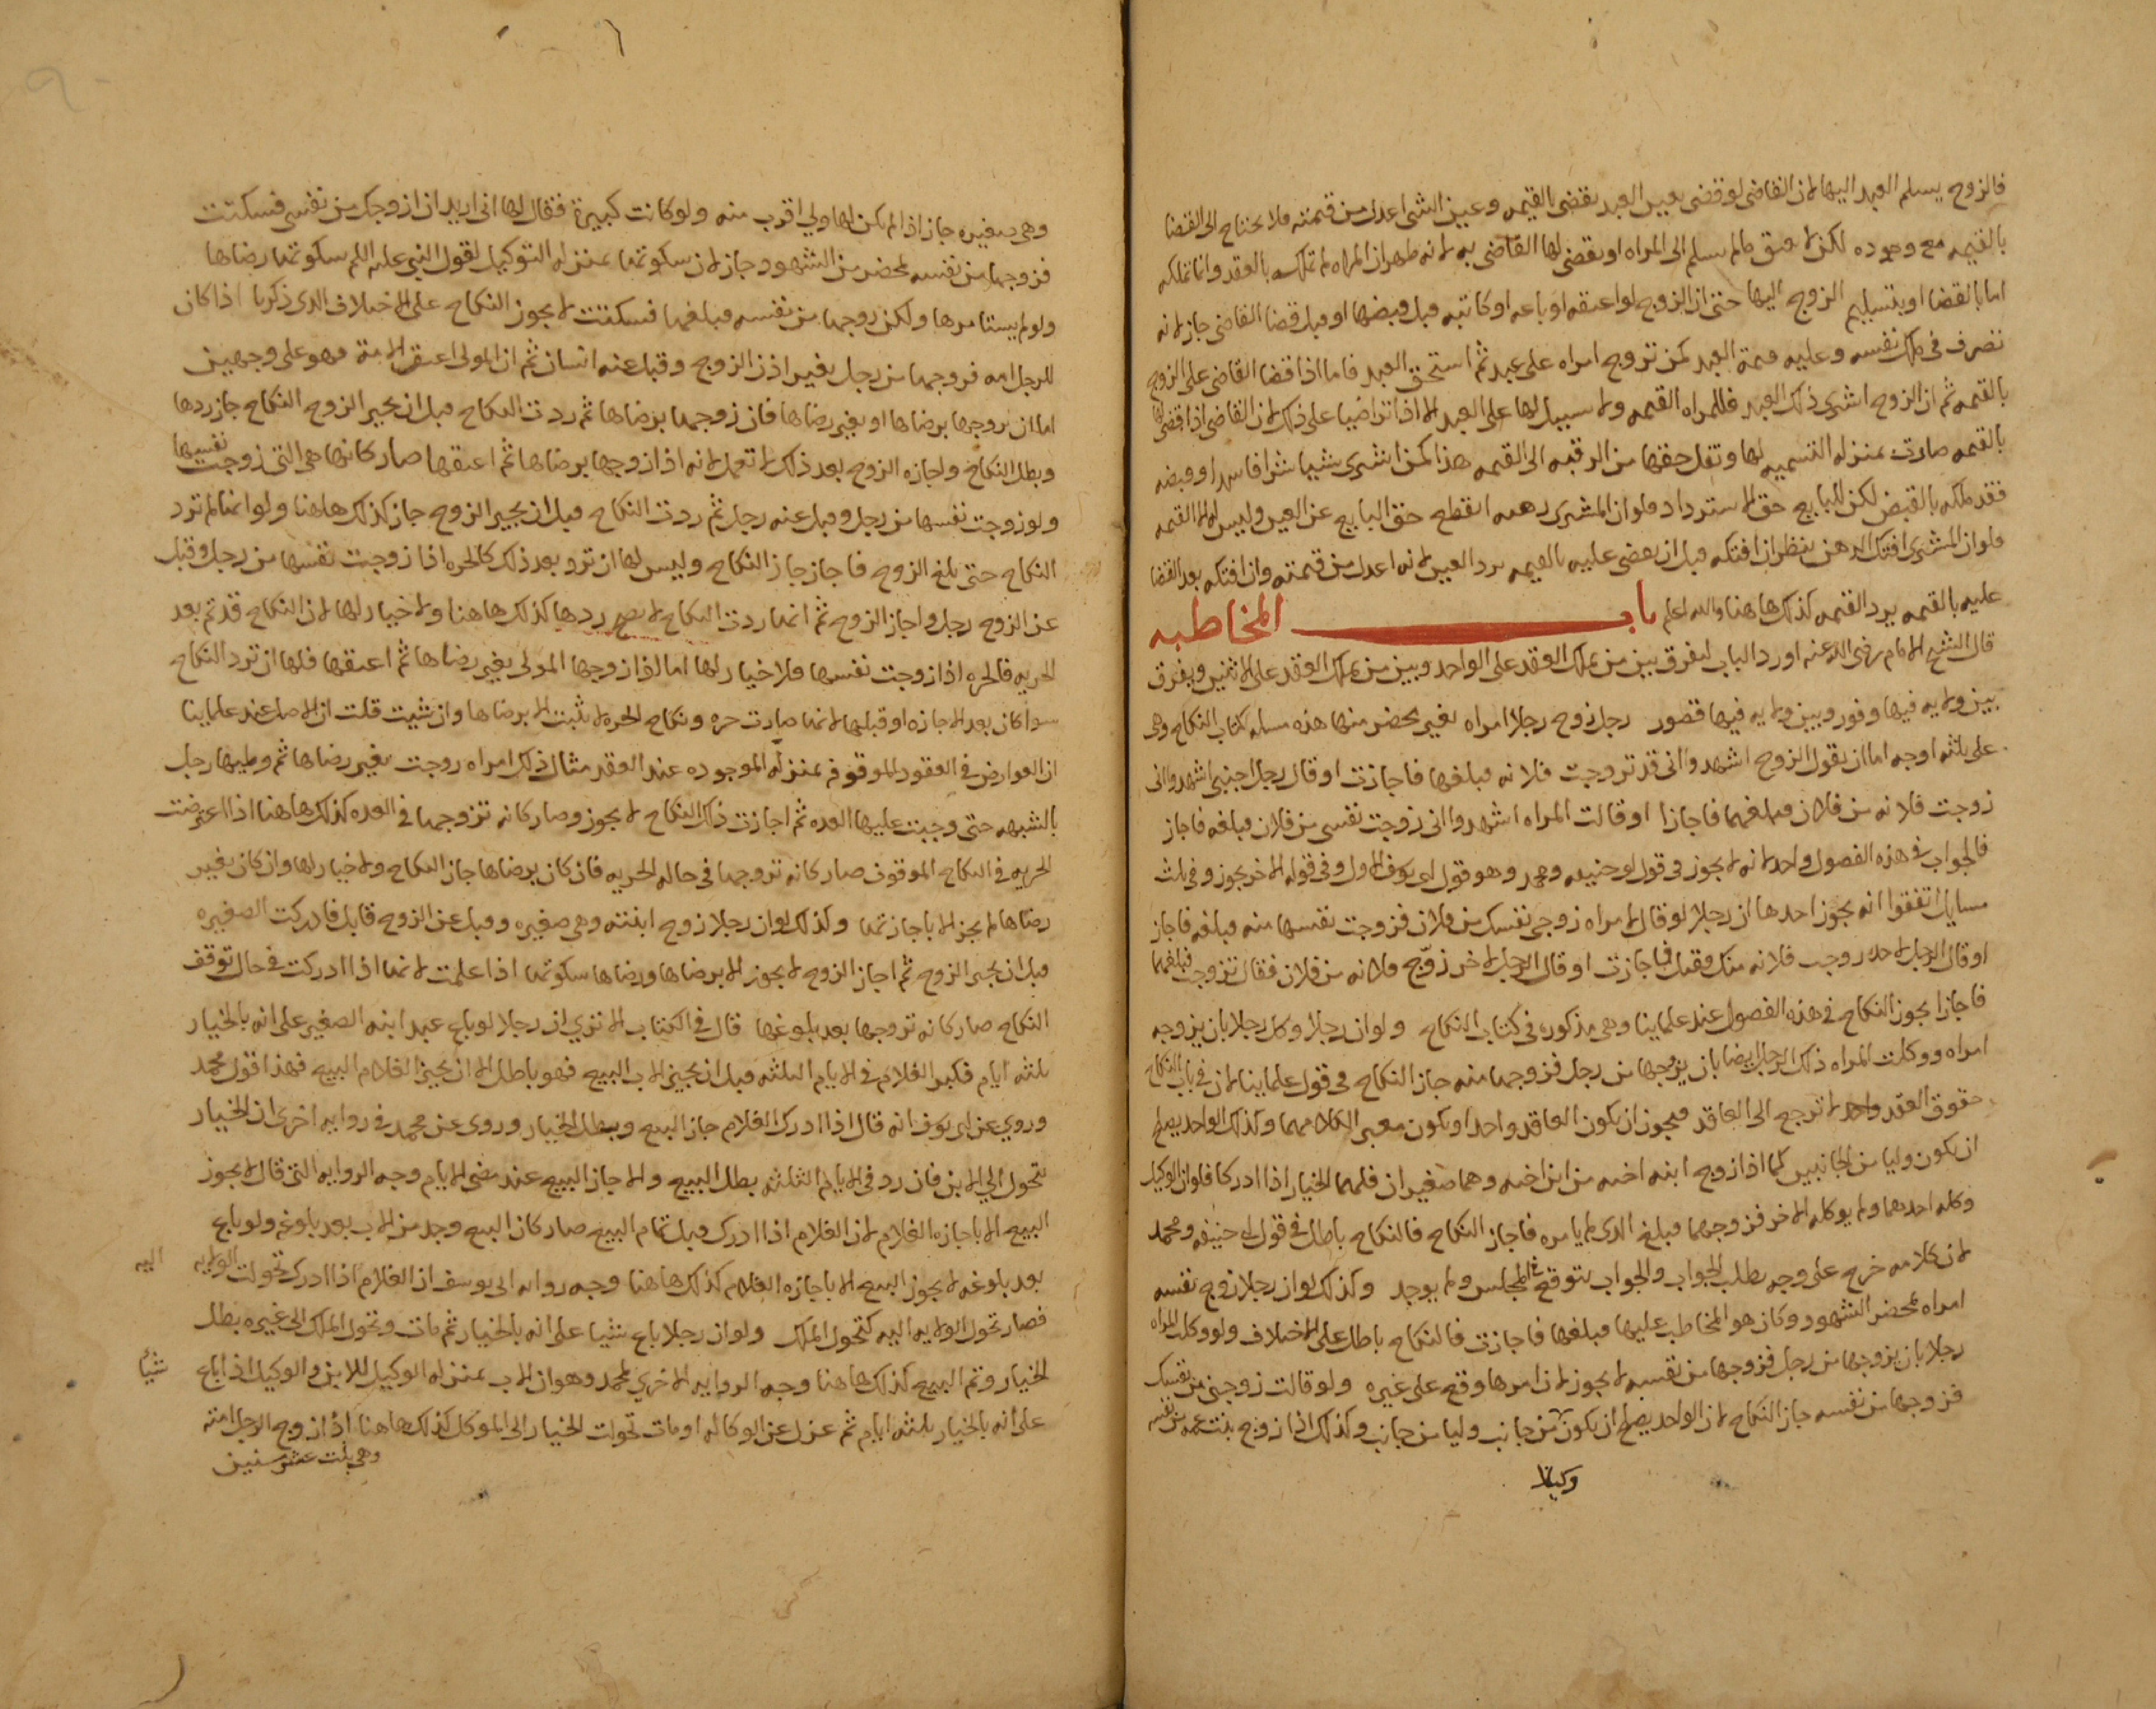 فالزوج يسلم العبد اليها لان القاضى لو قضى بعين العبد يقضى بالقيمه وعين الشى اعدل من قيمته فلا يحتاج الى القضا
بالقيمه مع وجوده لكن لا يعتق مالم يسلم الى المراه او يقضى لها القاضى به لانه ظهر ان المراه لم تملكه بالعقد وانما تملكه
اما بالقضا او بتسليم الزوج اليها حتى ان الزوج لو اعتقه او باعه او كاتبه قبل قبضها او قبل قضا القاضى جاز لانه
تصرف فى ملك نفسه وعليه قيمة العبد كمن تزوج امراه على عبد ثم استحق العبد فاما اذا قضا القاضى على الزوج
بالقيمه ثم ان الزوج اشترى ذلك العبد فللمراه القيمه ولا سبيل لها على العبد الا اذا تراضيا على ذلك لان القاضى اذا قضى لها
بالقيمه صارت بمنزله التسميه لها ونقل حقها من الرقبه الى القيمه هذا كمن اشترى شيا شرا فاسدا وقبضه
فقد ملكه بالقبض لكن للبايع حق الاسترداد فلو ان المشترى رهنه انقطع حق البايع عن العين وليس له الا القيمه
فلو ان المشترى افتك الرهن ينظر ان افتكه قبل ان يقضى عليه بالقيمه يرد العين لانه اعدل من قيمته وان افتكه بعد القضا
عليه بالقيمه يرد القيمه كذلك هاهنا والله اعلم باب المخاطبه
قال الشيخ الامام رضى الله عنه اورد الباب ليفرق بين من يملك العقد على الواحد وبين من يملك العقد على الاثنين ويفرق
بين ولايه فيها وفور وبين ولايه فيها قصور رجل زوج رجلا امراه بغير محضر منها هذه مسله كتاب النكاح وهى
على ثلثه اوجه اما ان يقول الزوج اشهدوا انى قد تزوجت فلانه فبلغها فاجازت او قال رجل اجنبى اشهدوا انى
زوجت فلانه من فلان فبلغهما فاجازا او قالت المراه اشهدوا انى زوجت نفسى من فلان فبلغه فاجاز
فالجواب فى هذه الفصول واحد انه لا يجوز فى قول ابو حنيفه ومحمد وهو قول ابى يوسف الاول وفى قوله الاخر يجوز وفى ثلث
مسايل اتفقوا انه يجوز احدها ان رجلا لو قال لامراه زوجى نفسك من فلان فزوجت نفسها منه فبلغه فاجاز
او قال الرجل لاخر زوجت فلانه منك فقبل فاجازت او قال الرجل لاخر زوّج فلانه من فلان فقال تزوجت فبلغهما
فاجازا يجوز النكاح فى هذه الفصول عند علماينا وهى مذكوره فى كتاب النكاح ولو ان رجلا وكل رجلا بان يزوجه
امراه ووكلت المراه ذلك الرجل ايضا بان يزوجها من رجل فزوجها منه جاز النكاح فى قول علماينا لان فى باب النكاح
حقوق العقد لا ترجع الى العاقد فيجوز ان يكون العاقد واحدا ويكون معبر الكلام منهما وكذلك الواحد يصلح
ان يكون وليا من الجانبين كما اذا زوج ابنه اخيه من ابن اخيه وهما صغيران فلهما الخيار اذا ادركا فلو ان الوكيل
وكله احدهما ولم يوكله الاخر فزوجهما فبلغ الذى لم يامره فاجاز النكاح فالنكاح باطل فى قول ابى حنيفه ومحمد
لان كلامه خرج على وجه يطلب الجواب والجواب يتوقع فى المجلس ولم يوجد وكذلك لو ان رجلا زوج نفسه
امراه بمحضر الشهود وكان هو المخاطب عليها فبلغها فاجازت فالنكاح باطل على الاختلاف ولو وكلت المراه
رجلا بان يزوجها من رجل فزوجها من نفسه لا يجوز لان امرها وقع على غيره ولو قالت زوجنى من نفسك
فزوجها من نفسه جاز النكاح لان الواحد يصلح ان يكون من جانب وليا من جانب وكذلك اذا زوج بنت عمه من نفسه
وكيلا
وهى صغيره جاز اذا لم يكن لها ولي اقرب منه ولو كانت كبيرة فقال لها انى اريد ان ازوجك من نفسى فسكتت
فزوجها من نفسه بمحضر من الشهود جاز لان سكوتها بمنزله التوكيل لقول النبى عليه السلم سكوتها رضاها
ولو لم يستامرها ولكن زوجها من نفسه فبلغها فسكتت لا يجوز النكاح على الاختلاف الذى ذكرنا اذا كان
للرجل امه فزوجها من رجل بغير اذن الزوج وقبل عنه انسان ثم ان المولى اعتق الامة فهو على وجهين
اما ان زوجها برضاها او بغير رضاها فان زوجها برضاها ثم ردت النكاح قبل ان يجيز الزوج النكاح جاز ردها
وبطل النكاح واجازه الزوج بعد ذلك لا تعمل لانه اذا زوجها برضاها ثم اعتقها صار كانها هى التى زوجت نفسها
ولو زوجت نفسها من رجل وقبل عنه رجل ثم ردت النكاح قبل ان يجيز الزوج جاز كذلك هاهنا ولو انها لم ترد
النكاح حتى بلغ الزوج فاجاز جاز النكاح وليس لها ان ترد بعد ذلك كالحره اذا زوجت نفسها من رجل وقبل
عن الزوج رجل واجاز الزوج ثم انها ردت النكاح لا يصح ردها كذلك هاهنا ولا خيار لها لان النكاح قد تم بعد
الحريه فالحره اذا زوجت نفسها فلا خيار لها اما اذا زوجها المولى بغير رضاها ثم اعتقها فلها ان ترد النكاح
سوا كان بعد الاجازه او قبلها لانها صارت حره ونكاح الحره لا يثبت الا برضاها وان شيت قلت ان الاصل عند علماينا
ان العوارض فى العقود الموقوفه بمنزله الموجوده عند العقد مثال ذلك امراه زوجت بغير رضاها ثم وطيها رجل
بالشبهه حتى وجبت عليها العده ثم اجازت ذلك النكاح لا يجوز وصار كانه تزوجها فى العده كذلك هاهنا اذا اعترضت
الحريه فى النكاح الموقوف صار كانه تزوجها فى حاله الحريه فان كان برضاها جاز النكاح ولا خيار لها وان كان بغير
رضاها لم يجز الا باجازتها وكذلك لو ان رجلا زوج ابنته وهى صغيره وقبل عن الزوج قابل فادركت الصغيره
قبل ان يجيز الزوج ثم اجاز الزوج لا يجوز الا برضاها ورضاها سكوتها اذا علمت لانها اذا ادركت فى حال توقف
النكاح صار كانه تزوجها بعد بلوغها قال فى الكتاب الا ترى ان رجلا لو باع عبد ابنه الصغير على انه بالخيار
ثلثه ايام فكبر الغلام فى الايام الثلثه قبل ان يجيز الاب البيع فهو باطل الا ان يجيز الغلام البيع فهذا قول محمد
وروي عن ابى يوسف انه قال اذا ادرك الغلام جاز البيع وبطل الخيار وروى عن محمد فى روايه اخرى ان الخيار
يتحول الي الابن فان رد فى الايام الثلثه بطل البيع والا جاز البيع عند مضى الايام وجه الروايه التى قال لا يجوز
البيع الا باجازه الغلام لان الغلام اذا ادرك قبل تمام البيع صار كان البيع وجد من الاب بعد بلوغه ولو باع
بعد بلوغه لا يجوز البيع الا باجازه الغلام كذلك هاهنا وجه روايه ابى يوسف ان الغلام اذا ادرك تحولت الولايه اليه
فصار تحول الولايه اليه كتحول الملك ولو ان رجلا باع شيا على انه بالخيار ثم مات وتحول الملك الى غيره بطل
الخيار وتم البيع كذلك هاهنا وجه الروايه الاخرى لمحمد وهو ان الاب بمنزله الوكيل للابن والوكيل اذا باع شيأ
على انه بالخيار ثلثه ايام ثم عزل عن الوكاله او مات تحولت الخيار الى الموكل كذلك هاهنا اذا زوج الرجل امته
وهى بنت عشر سنين